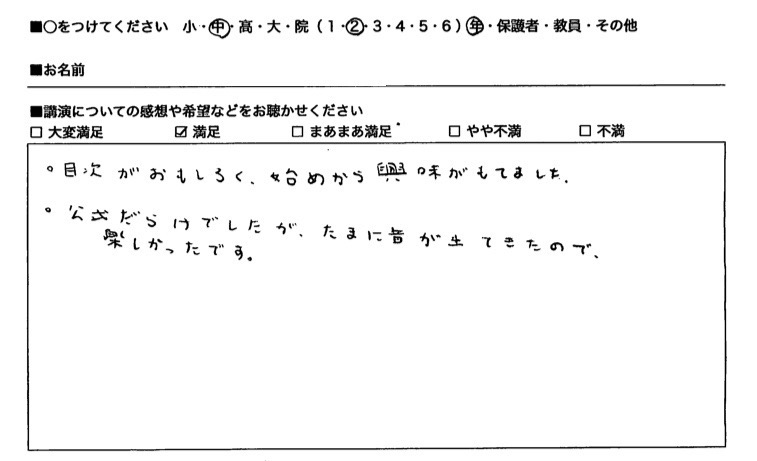 ■○をつけてください　小・中・高・大・院（1・2・3・4・5・6）年・保護者・教員・その他
■お名前
■講演についての感想や希望などをお聴かせください
□ 大変満足　☑ 満足　□ まあまあ満足　□ やや不満　□ 不満
。目次がおもしろく、始めから興味がもてました。
。公式だらけでしたが、たまに音が生てきたので、
楽しかったです。